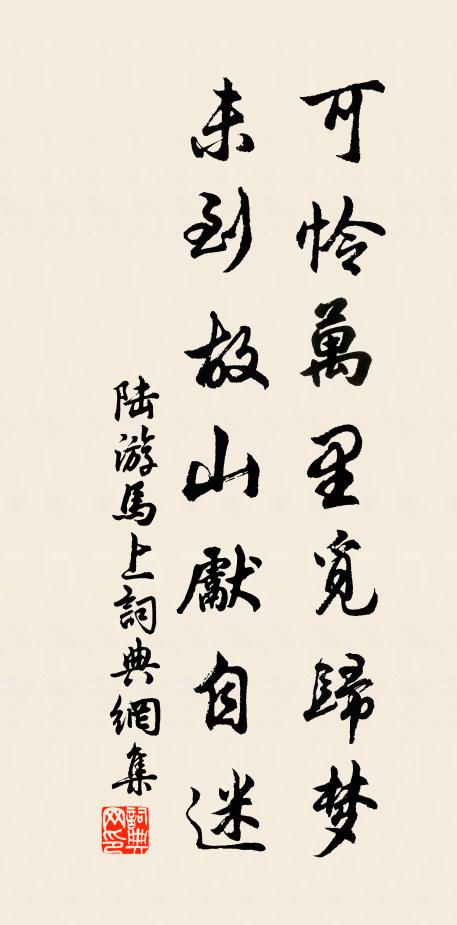 可怜萬里覓歸梦
未到故山獻自迷
陆游馬上詞典網集
詞典
网印